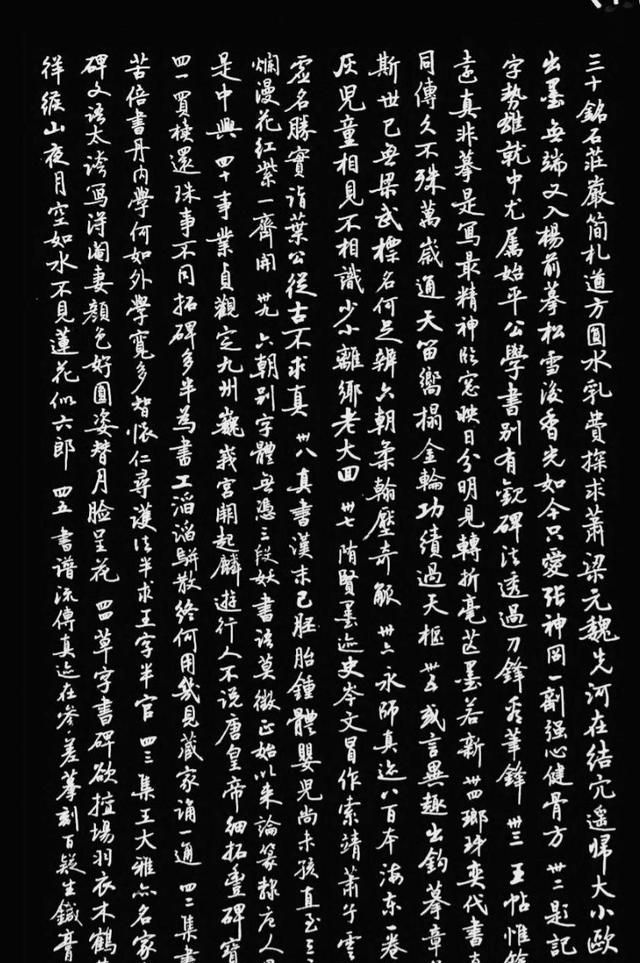 三十銘石莊嚴簡札遒方圓水乳費探求蕭梁元魏先河在結穴遙歸大小歐
出墨無端又入楊前摹松雪後香光如今只愛張神冏一劑強心健骨方 卅二題記
字勢雄就中尤屬始平公學書別有觀碑法透過刀鋒看筆鋒 卅三 王帖惟餘
遠真非摹是寫最精神臨窗映日分明見轉折毫芒墨若新 卅四 琅玡奕代書
同傳久不殊萬歲通天留響搨金輪功績過天樞 卅五 或言異趣出鈎摹章
斯世已無梁武標名何足辨六朝柔翰壓奇觚 卅六 永師真迹八百本海東一卷
灰兒童相見不相識少小離鄉老大回 卅七 隋賢墨迹史岑文冒作索靖蕭子雲
虛名勝實詣葉公從古不求真 卅八 真書漢末已胚胎鍾體嬰兒尚未孩直至三
爛漫花紅紫一齊開 卅九 六朝別字體無憑三段妖書語莫徵正始以來論篆隸唐人
是中興 四十 事業貞觀定九州巍峩宮闕起麟遊行人不說唐皇帝細拓豐碑寶
四一 買櫝還珠事不同拓碑多半為書工滔滔駢散終何用幾見藏家誦一通 四二 集書
苦倍書丹內學何如外學寬多智懷仁尋護法半求王字半求官 四三 集王大雅亦名家
碑文語太誇寫得閹妻顏色好圓姿替月臉呈花 四四 草字書碑欲擅場羽衣木鶴
徉緱山夜月空如水不見蓮花似六郎 四五 書譜流傳真迹在參差摹刻百疑生鍼膏